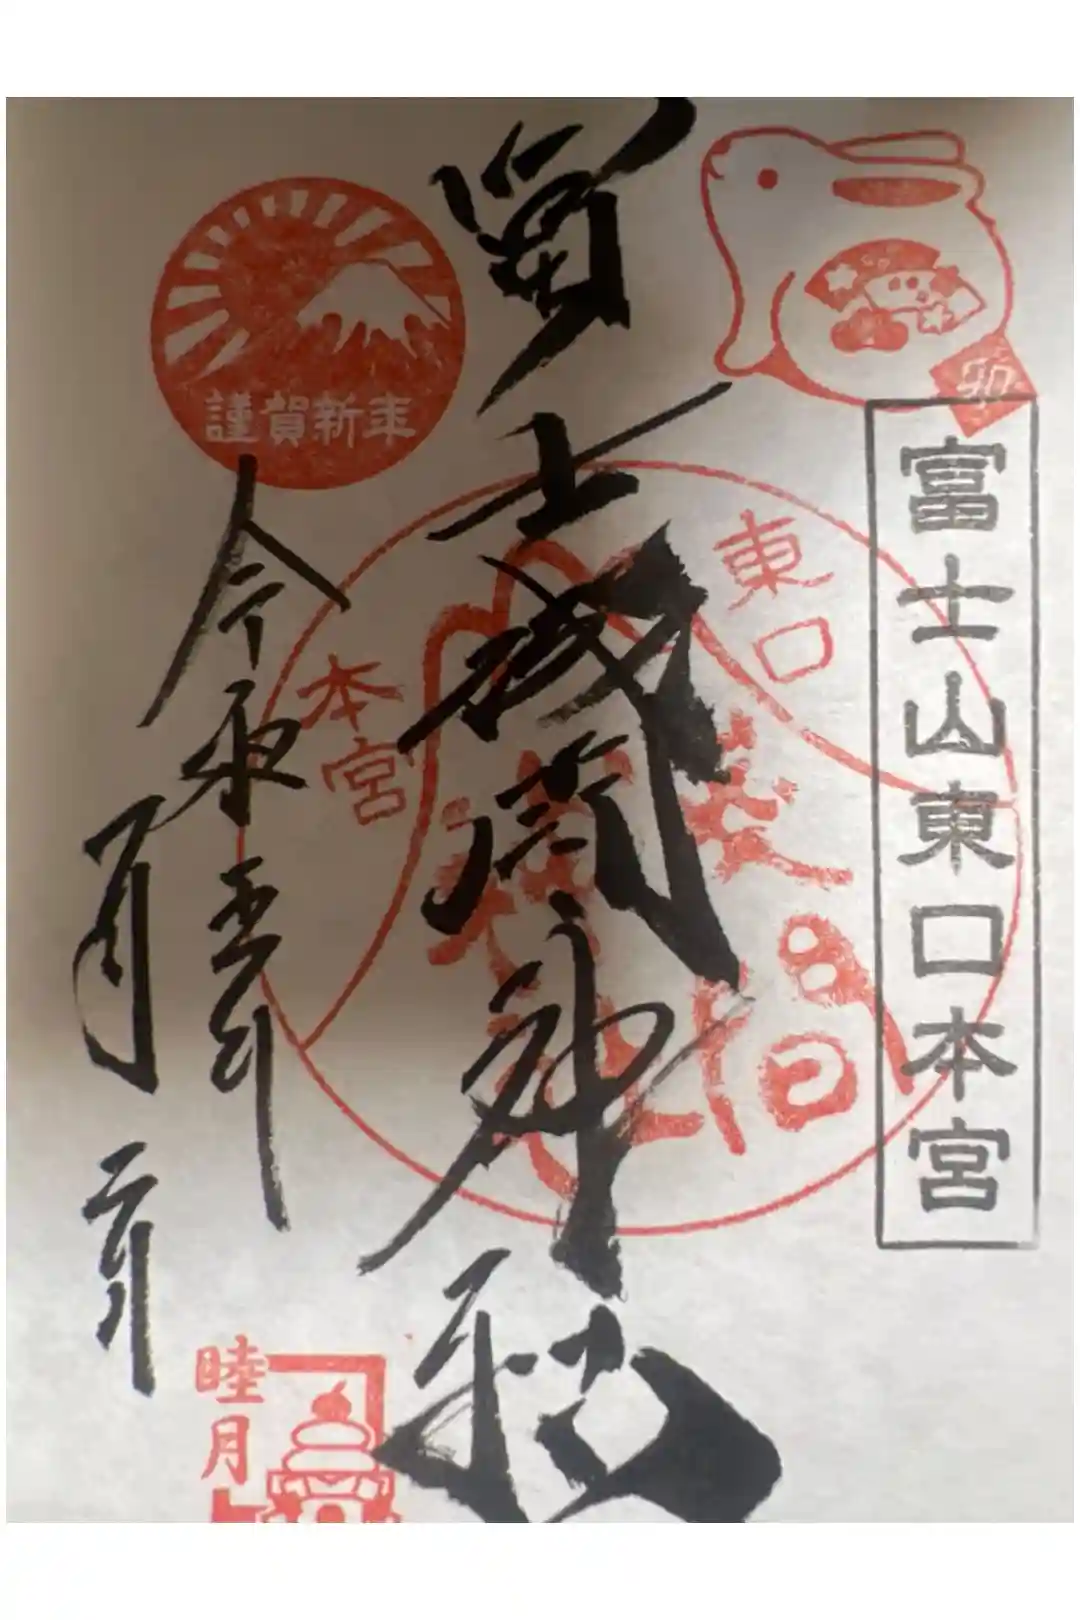 卯
富士山東口本宮
冨士浅間神社
東口
本宮
謹賀新年
令和五年
一月二日
睦月